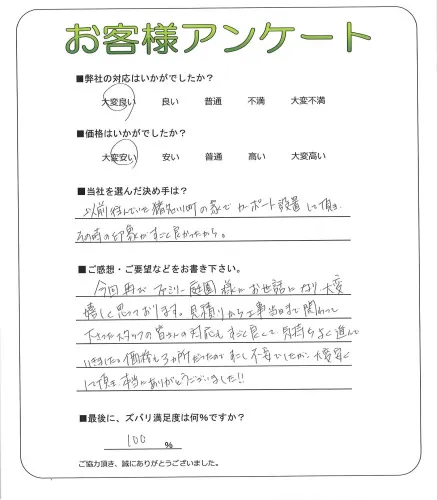 お客様アンケート
■弊社の対応はいかがでしたか？
大変良い 良い 普通 不満 大変不満
■価格はいかがでしたか？
大変安い 安い 普通 高い 大変高い
■当社を選んだ決め手は？
以前住んでいた猪名川町の家でカーポート設置して頂き
その時の印象がすごく良かったから。
■ご感想・ご要望などをお書き下さい。
今回再びファミリー庭園様にお世話になり大変
嬉しく思っております。見積りから工事当日まで関わって
下さったスタッフの皆さんの対応もすごく良くて、気持ちよく進んで
いきました。価格も3ヶ所だったのですこし不安でしたが、大変安く
して頂き、本当にありがとうございました!!
■最後に、ズバリ満足度は何％ですか？
100 ％
ご協力頂き、誠にありがとうございました。